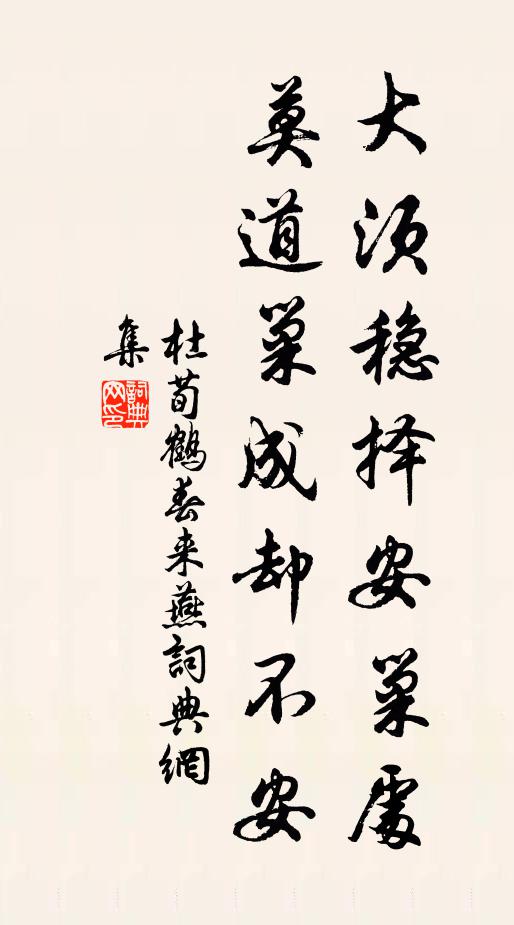 大须稳择安巢處
莫道巢成却不安
杜荀鶴春来燕詞典網
集
詞典网印